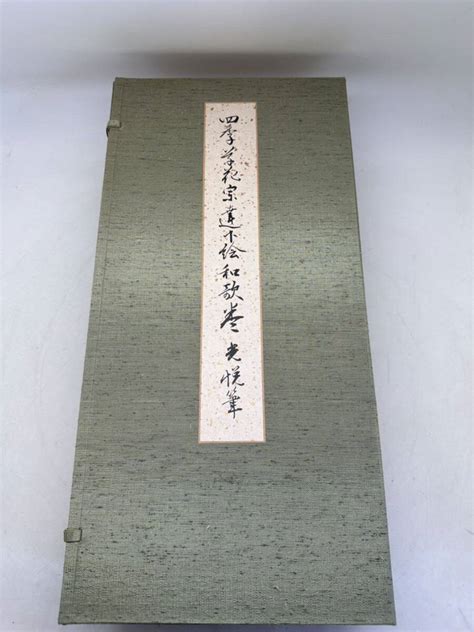 四季草花宗達下絵和歌巻 光悦筆